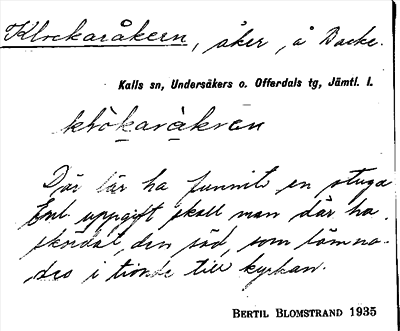 Klockaråkern, åker, å Backe.
Kalls sn, Undersåkers o. Offerdals tg, Jämtl. l.
klòkaràkran
Där lär ha funnits en stuga
Enl. uppgift skall man där ha
skördat den säd, som lämna-
des i tionde till kyrkan.
BERTIL BLOMSTRAND 1935